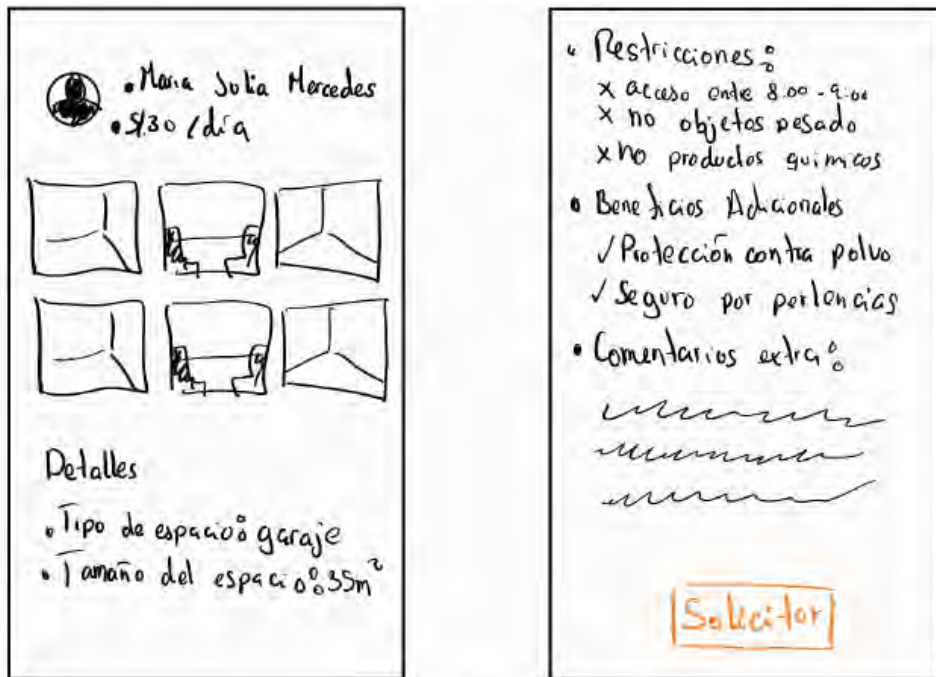 • Maria Julia Mercedes
• S/.30 / día
Detalles
• Tipo de espacio: garaje
• Tamaño del espacio: 35m²
• Restricciones:
x acceso entre 8:00 - 9:00
x no objetos pesado
x no productos quimicos
• Beneficios Adicionales
✓ Protección contra polvo
✓ Seguro por pertencias
• Comentarios extra:
Solicitar